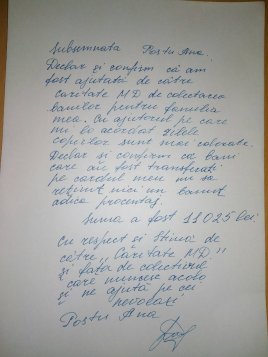 Subsemnata Postu Ana
Declar și confirm că am
fost ajutată de către
caritate MD de colectarea
banilor pentru familia
mea. Cu ajutorul pe care
mi lo acordat zilele
copiilor sunt mai colorate.
Declar și confirm că bani
care au fost transferați
pe cardul meu nu sa
reținut nici un bănuț
adică procentaj.
Suma a fost 11025 lei
Cu respect și stimă de
către "Caritate MD"
și față de colectivul
care muncesc acolo
și ne ajută pe cei
nevoiași
Postu Ana